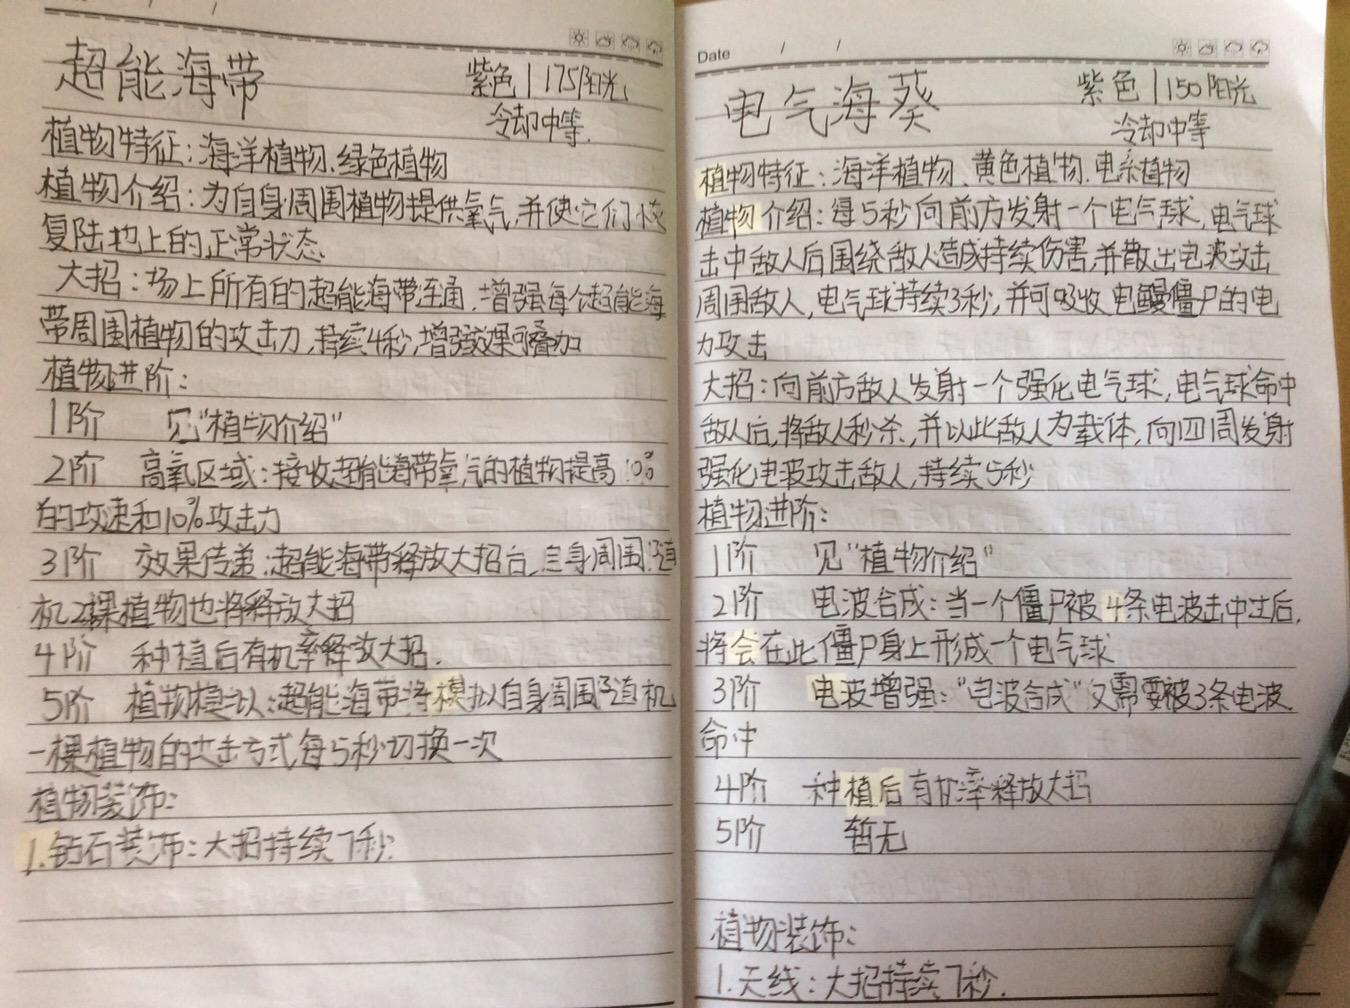 超能海带
紫色|175阳光
冷却中等.
植物特征:海洋植物、绿色植物
植物介绍:为自身周围植物提供氧气,并使它们恢
复陆地上的正常状态
大招:场上所有的超能海带连通,增强每个超能海
带周围植物的攻击力,持续4秒,增强效果可叠加
植物进阶:
1阶 见"植物介绍"
2阶 高氧区域:接收超能海带氧气的植物提高10%
的攻速和10%攻击力
3阶 效果传递:超能海带释放大招后,自身周围随
机2棵植物也将释放大招
4阶 种植后有机率释放大招.
5阶 植物模拟:超能海带将模拟自身周围随机
一棵植物的攻击方式,每5秒切换一次
植物装饰:
1.钻石装饰:大招持续7秒.
Date / /
电气海葵
紫色|150阳光
冷却中等
植物特征:海洋植物、黄色植物、电系植物
植物介绍:每5秒向前方发射一个电气球,电气球
击中敌人后围绕敌人造成持续伤害,并散出电波攻击
周围敌人,电气球持续3秒,并可吸收电鳗僵尸的电
力攻击
大招:向前方敌人发射一个强化电气球,电气球命中
敌人后,将敌人秒杀,并以此敌人为载体,向四周发射
强化电波攻击敌人,持续5秒
植物进阶:
1阶 见"植物介绍"
2阶 电波合成:当一个僵尸被4条电波击中过后,
将会在此僵尸身上形成一个电气球
3阶 电波增强:"电波合成"仅需要被3条电波
命中
4阶 种植后有机率释放大招
5阶 暂无
植物装饰:
1.天线:大招持续7秒.